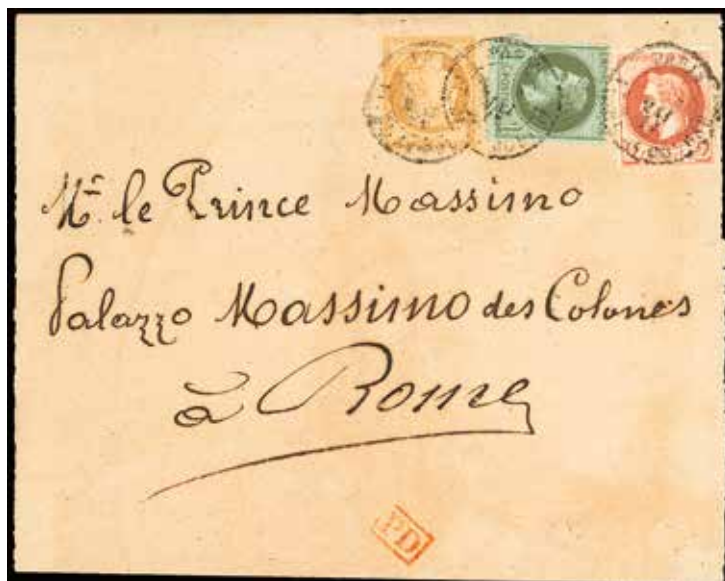 Mr. le Prince Massimo
Palazzo Massimo des Colones
à Rome
PD